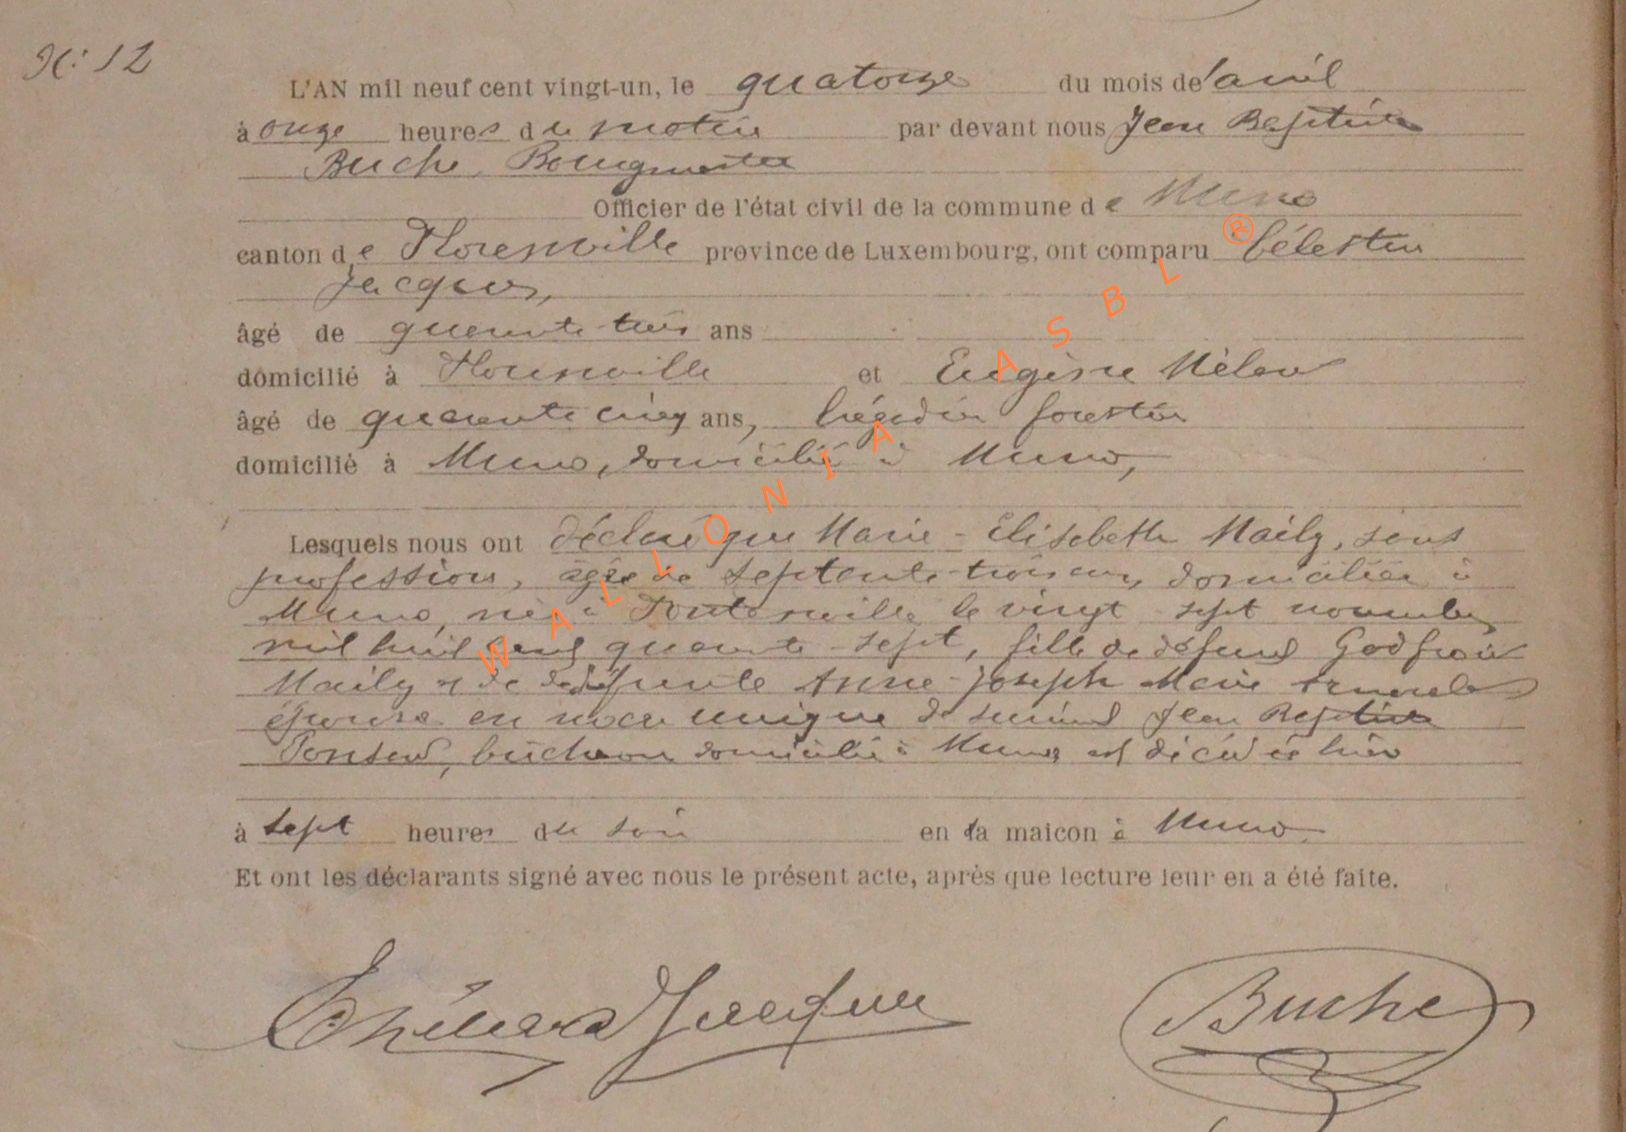 N: 12
L'AN mil neuf cent vingt-un, le quatorze du mois de l'avril
à onze heures du matin par devant nous Jean Baptiste
Buche, Bourgmestre
Officier de l'état civil de la commune de Muno
canton de Florenville province de Luxembourg, ont comparu Célestin
Jacques,
âgé de quarante trois ans
domicilié à Florenville et Eugène
âgé de quarante cinq ans, forestier
domicilié à Muno, domicilié à Muno,
Lesquels nous ont déclaré que Marie-Elisabeth Maily, sans
profession, âgée de septante-trois ans, domiciliée à
Muno, née à le vingt sept novembre
mil huit cent quarante-sept, fille de défunt Godfroid
Maily et de défunte Anne-Joseph Marie
épouse en noces unique de Jean Baptiste
Ponsard, bûcheron domicilié à Muno est décédée hier
à sept heures du soir en sa maison à Muno
Et ont les déclarants signé avec nous le présent acte, après que lecture leur en a été faite.
Jacques Buche
WALLONIA ASBL ®